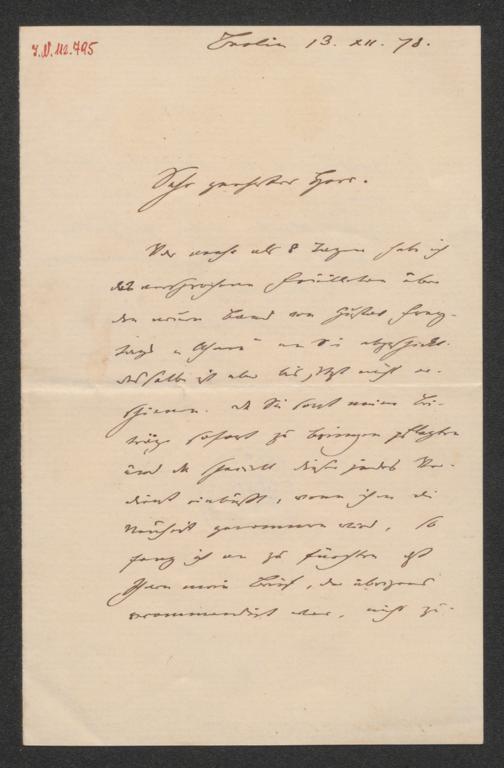 I.N. 112.795
Berlin 13. XII. 78.
Sehr geehrter Herr.
Vor mehr als 8 Tagen habe ich
das versprochene Feuilleton über
den neuen Band von Gustav Frey-
tags „Ahnen“ an Sie abgeschickt.
dasselbe ist aber bis jetzt nicht er-
schienen. da Sie sonst meine Bei-
träge sofort zu bringen pflegten
und da speciell dieser jedes Ver-
dienst einbüßt, wenn ihm die
Neuheit genommen wird, so
fang ich an zu fürchten
Ihnen mein Brief, der übrigens
recommandirt war, nicht zu-